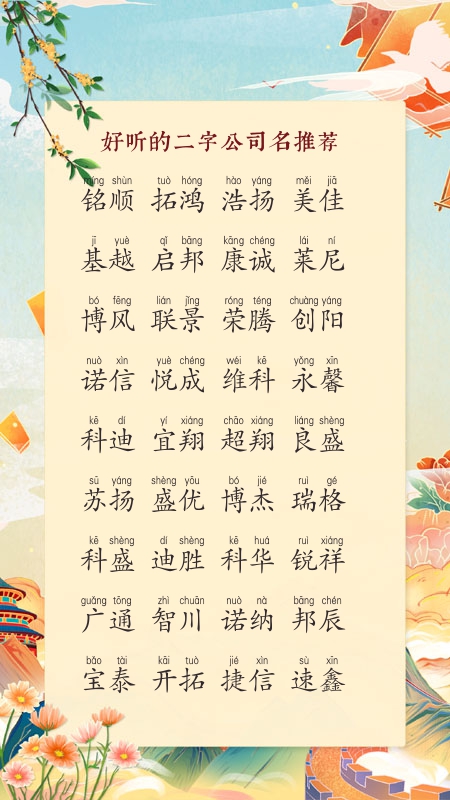 好听的二字公司名推荐
míng shùn tuò hóng hào yáng měi jiā
铭顺 拓鸿 浩扬 美佳
jī yuè qǐ bāng kāng chéng lái ní
基越 启邦 康诚 莱尼
bó fēng lián jǐng róng téng chuàng yáng
博风 联景 荣腾 创阳
nuò xìn yuè chéng wéi kē yǒng xīn
诺信 悦成 维科 永馨
kē dí yí xiáng chāo xiáng liáng shèng
科迪 宜翔 超翔 良盛
sū yáng shèng yōu bó jié ruì gé
苏扬 盛优 博杰 瑞格
kē shèng dí shèng kē huá ruì xiáng
科盛 迪胜 科华 锐祥
guǎng tōng zhì chuān nuò nà bāng chén
广通 智川 诺纳 邦辰
bǎo tài kāi tuò jié xìn sù xīn
宝泰 开拓 捷信 速鑫